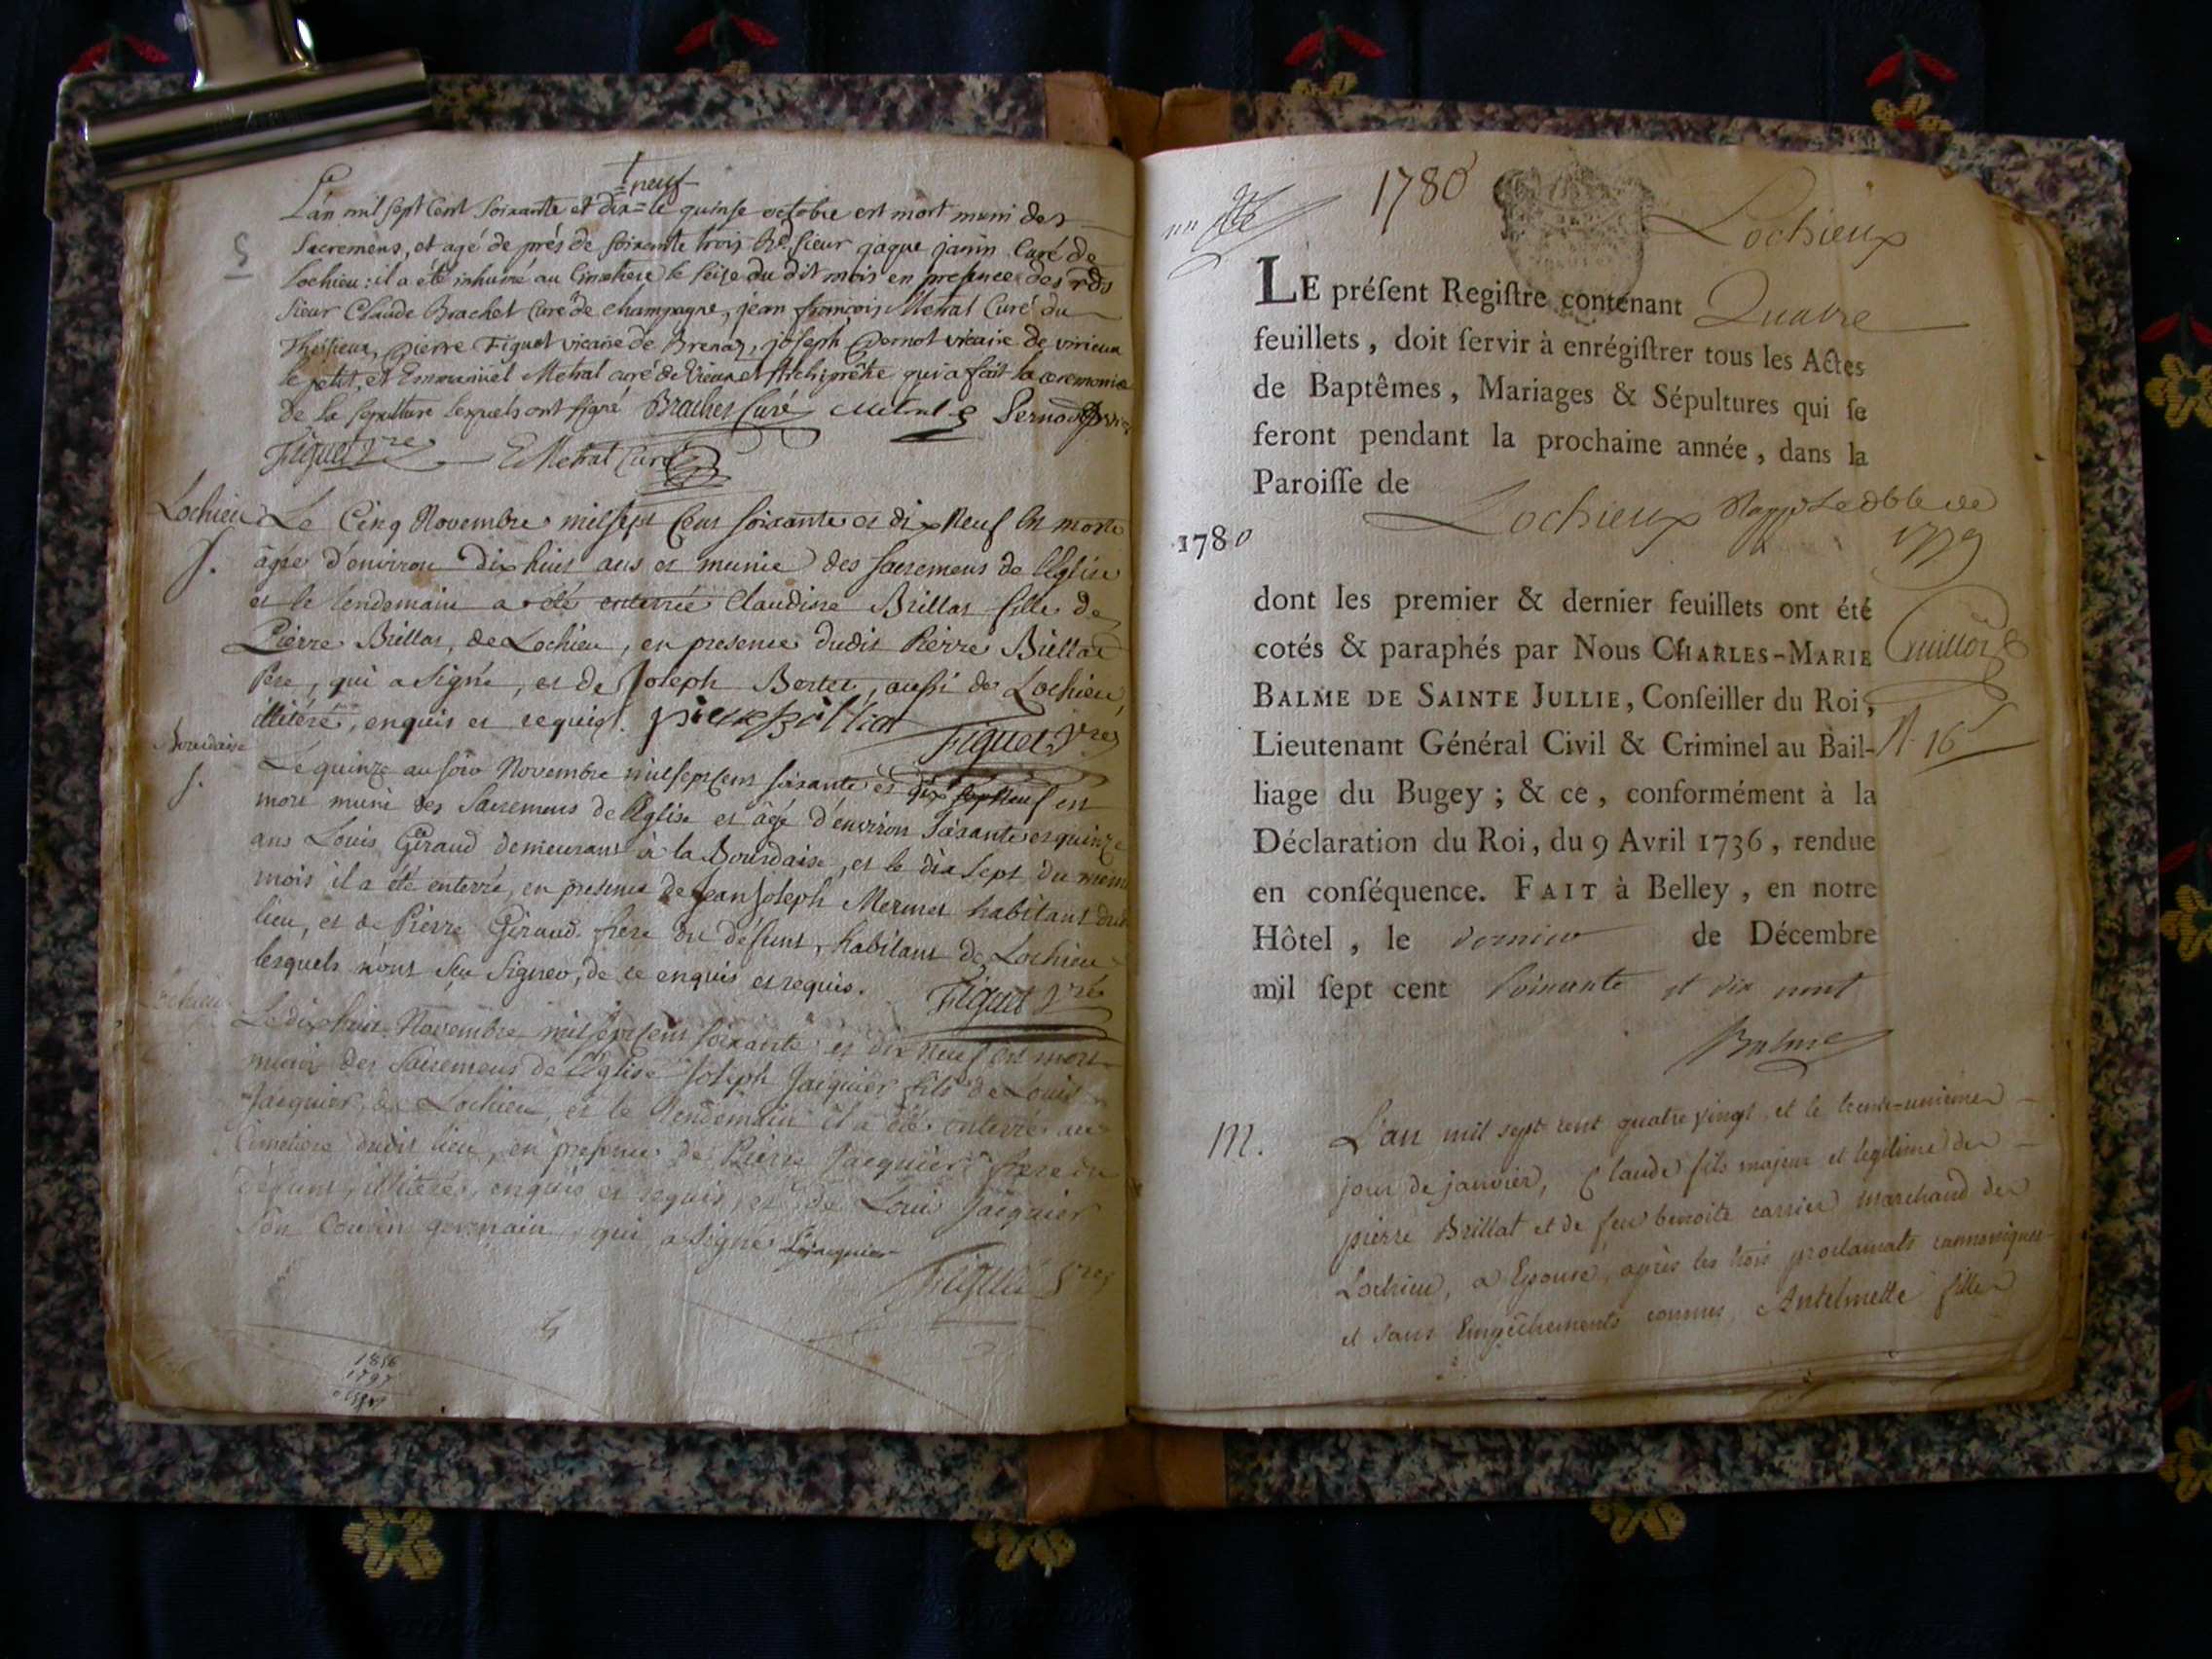 neuf
L'an mil sept cent soixante et dix= le quinse octobre est mort muni des
S
Sacremens, et agé de prés de soixante trois Rd. sieur jaque janin Curé de
Lochieu: il a été inhumé au Cimetiere le seize du dit mois en presence des rds
sieur Claude Brachet Curé de champagne, jean françois Metral Curé du
pierre Figuet vicaire de Brenaz, joseph Pernot vicaire de virieux
le petit, et Emmanüel Metral curé de Vieux et Archiprêtre qui a fait la ceremonie
de la sepulture lesquels ont signé Brachet Curé Metral Pernod
Figuet vre E Metral Curé
Lochieu Le Cinq Novembre mil sept Cens soixante et dix Neuf est morte
S. âgée d'environ dix huit ans et munie des sacremens de l'Eglise
et le lendemain a été enterrée Claudine Brillat fille de
Pierre Brillat, de Lochieu, en presence dudit Pierre Brillat
Pere, qui a signé, et de Joseph Bertet, aussi de Lochieu,
illitéré, enquis et requis. pierre Figuet Vre
Bourdaise
S. Le quinze au soir Novembre mil sept cens soixante et dix neuf est
mort muni des Sacremens de l'Eglise et âgé d'environ soixante et quinze
ans Louis Giraud demeurant à la Bourdaise, et le dix sept du mem
mois il a été enterré, en presence de Jean Joseph Mermet habitant dud
lieu, et de Pierre Giraud frere du défunt, habitant de Lochieu
lesquels n'ont sçu signer, de ce enquis et requis. Figuet Vre
Lochieu
Le dix huit Novembre mil sept cens soixante et dix neuf est mort
muni des Sacremens de l'Eglise Joseph Jacquier fils de Louis
Jacquier, de Lochieu, et le lendemain il a été enterré au
Cimetiere dudit lieu, en presence de Pierre Jacquier frere du
défunt, illitéré, enquis et requis, et de Louis Jacquier
son Cousin germain, qui a signé
Figuet Vre
1856
1797
1780
Lochieux
LE préſent Regiſtre contenant Quatre
feuillets, doit ſervir à enrégiſtrer tous les Actes
de Baptêmes, Mariages & Sépultures qui ſe
feront pendant la prochaine année, dans la
Paroiſſe de Lochieux
1779
1780
dont les premier & dernier feuillets ont été
cotés & paraphés par Nous CHARLES-MARIE
BALME DE SAINTE JULLIE, Conſeiller du Roi,
Lieutenant Général Civil & Criminel au Bail-
16
liage du Bugey; & ce, conformément à la
Déclaration du Roi, du 9 Avril 1736, rendue
en conſéquence. FAIT à Belley, en notre
Hôtel, le dernier de Décembre
mil ſept cent soixante et dix neuf
Balme
M. L'an mil sept cent quatre vingt, et le trente-unieme
jour de janvier, Claude fils majeur et légitime de
pierre Brillat et de feu benoite carrier marchand de
Lochieu, a Epousé, après les trois proclamats cannoniques
et sans Empêchements connus, Antelmette fille